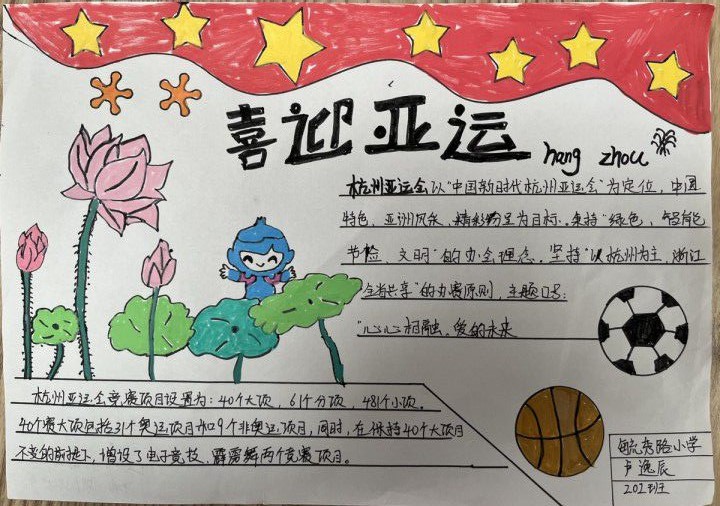 喜迎亚运
hang zhou
杭州亚运会以"中国新时代杭州亚运会"为定位，中国
特色、亚洲风采、精彩纷呈为目标，秉持"绿色、智能
节俭、文明"的办会理念，坚持"以杭州为主，浙江
全省共享"的办赛原则，主题口号：
"心心相融，爱的未来
杭州亚运会竞赛项目设置为：40个大项，61个分项，481个小项。
40个赛大项包括31个奥运项目和9个非奥运项目，同时，在保持40个大项目
不变的前提下，增设了电子竞技、霹雳舞两个竞赛项目。
毓秀路小学
卢逸辰
202班